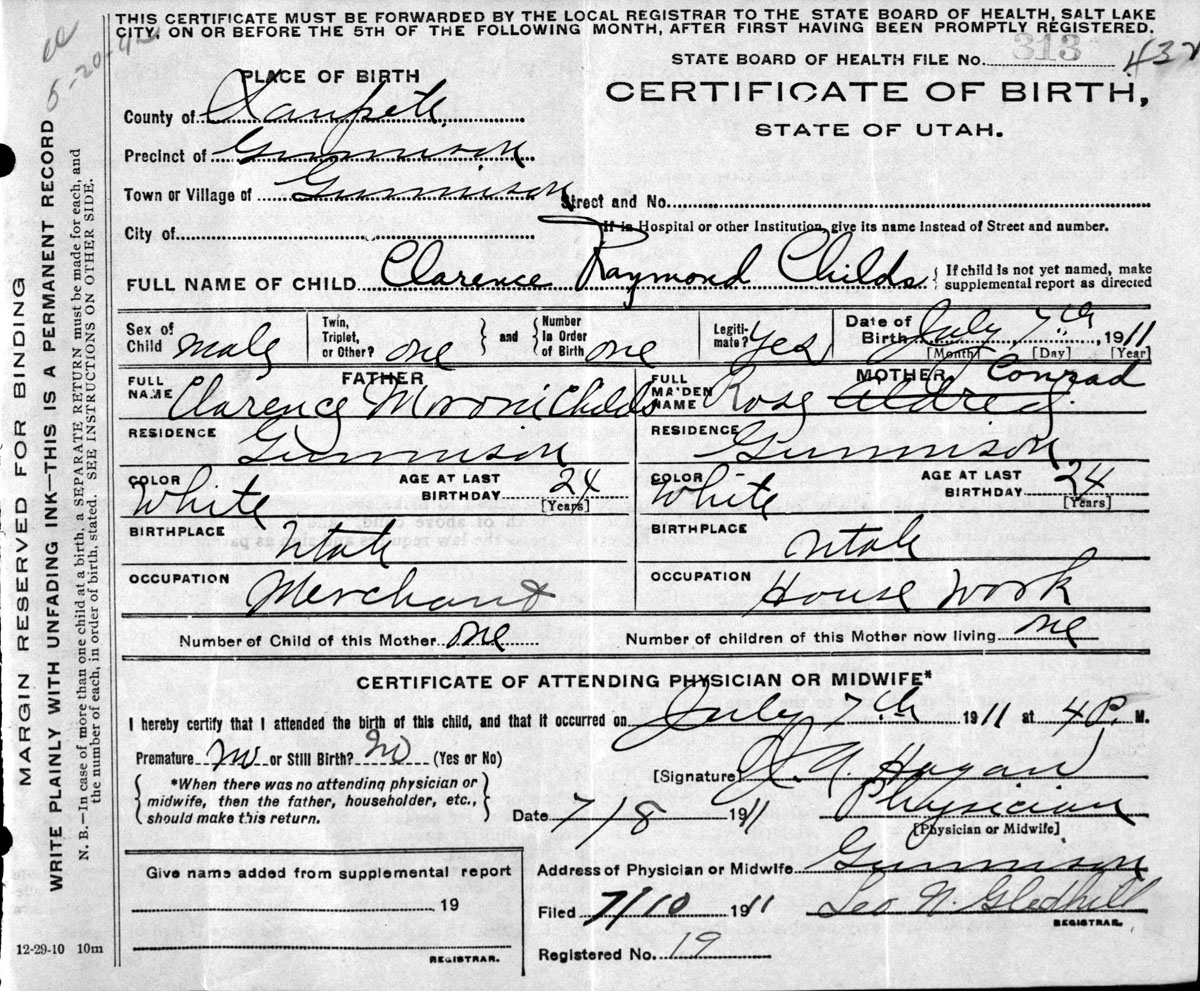 THIS CERTIFICATE MUST BE FORWARDED BY THE LOCAL REGISTRAR TO THE STATE BOARD OF HEALTH, SALT LAKE
CITY, ON OR BEFORE THE 5TH OF THE FOLLOWING MONTH, AFTER FIRST HAVING BEEN PROMPTLY REGISTERED.
STATE BOARD OF HEALTH FILE No. 313 432
PLACE OF BIRTH
CERTIFICATE OF BIRTH,
STATE OF UTAH.
County of Sanpete
Precinct of Gunnison
Town or Village of Gunnison Street and No.
City of If in Hospital or other Institution, give its name instead of Street and number.
FULL NAME OF CHILD Clarence Raymond Childs { If child is not yet named, make supplemental report as directed
Sex of Child Male Twin, Triplet, or Other? one } and { Number In Order of Birth one Legitimate? Yes Date of Birth July 7th, 1911
[Month] [Day] [Year]
FATHER MOTHER
FULL NAME Clarence Moroni Childs FULL MAIDEN NAME Rose Aldred Conrad
RESIDENCE Gunnison RESIDENCE Gunnison
COLOR White AGE AT LAST BIRTHDAY 24 [Years] COLOR White AGE AT LAST BIRTHDAY 24 [Years]
BIRTHPLACE Utah BIRTHPLACE Utah
OCCUPATION Merchant OCCUPATION House Work
Number of Child of this Mother one Number of children of this Mother now living one
CERTIFICATE OF ATTENDING PHYSICIAN OR MIDWIFE*
I hereby certify that I attended the birth of this child, and that it occurred on July 7th 1911 at 4 P. M.
Premature no or Still Birth? no (Yes or No)
[Signature] Hagan
{ *When there was no attending physician or
midwife, then the father, householder, etc.,
should make this return. }
Date 7/8 1911 Physician
[Physician or Midwife]
Give name added from supplemental report
19
REGISTRAR.
Address of Physician or Midwife Gunnison
Filed 7/10 1911 Leo N. Gledhill
REGISTRAR.
Registered No. 19
12-29-10 10m
MARGIN RESERVED FOR BINDING
WRITE PLAINLY WITH UNFADING INK—THIS IS A PERMANENT RECORD
N. B.—In case of more than one child at a birth, a SEPARATE RETURN must be made for each, and
the number of each, in order of birth, stated. SEE INSTRUCTIONS ON OTHER SIDE.